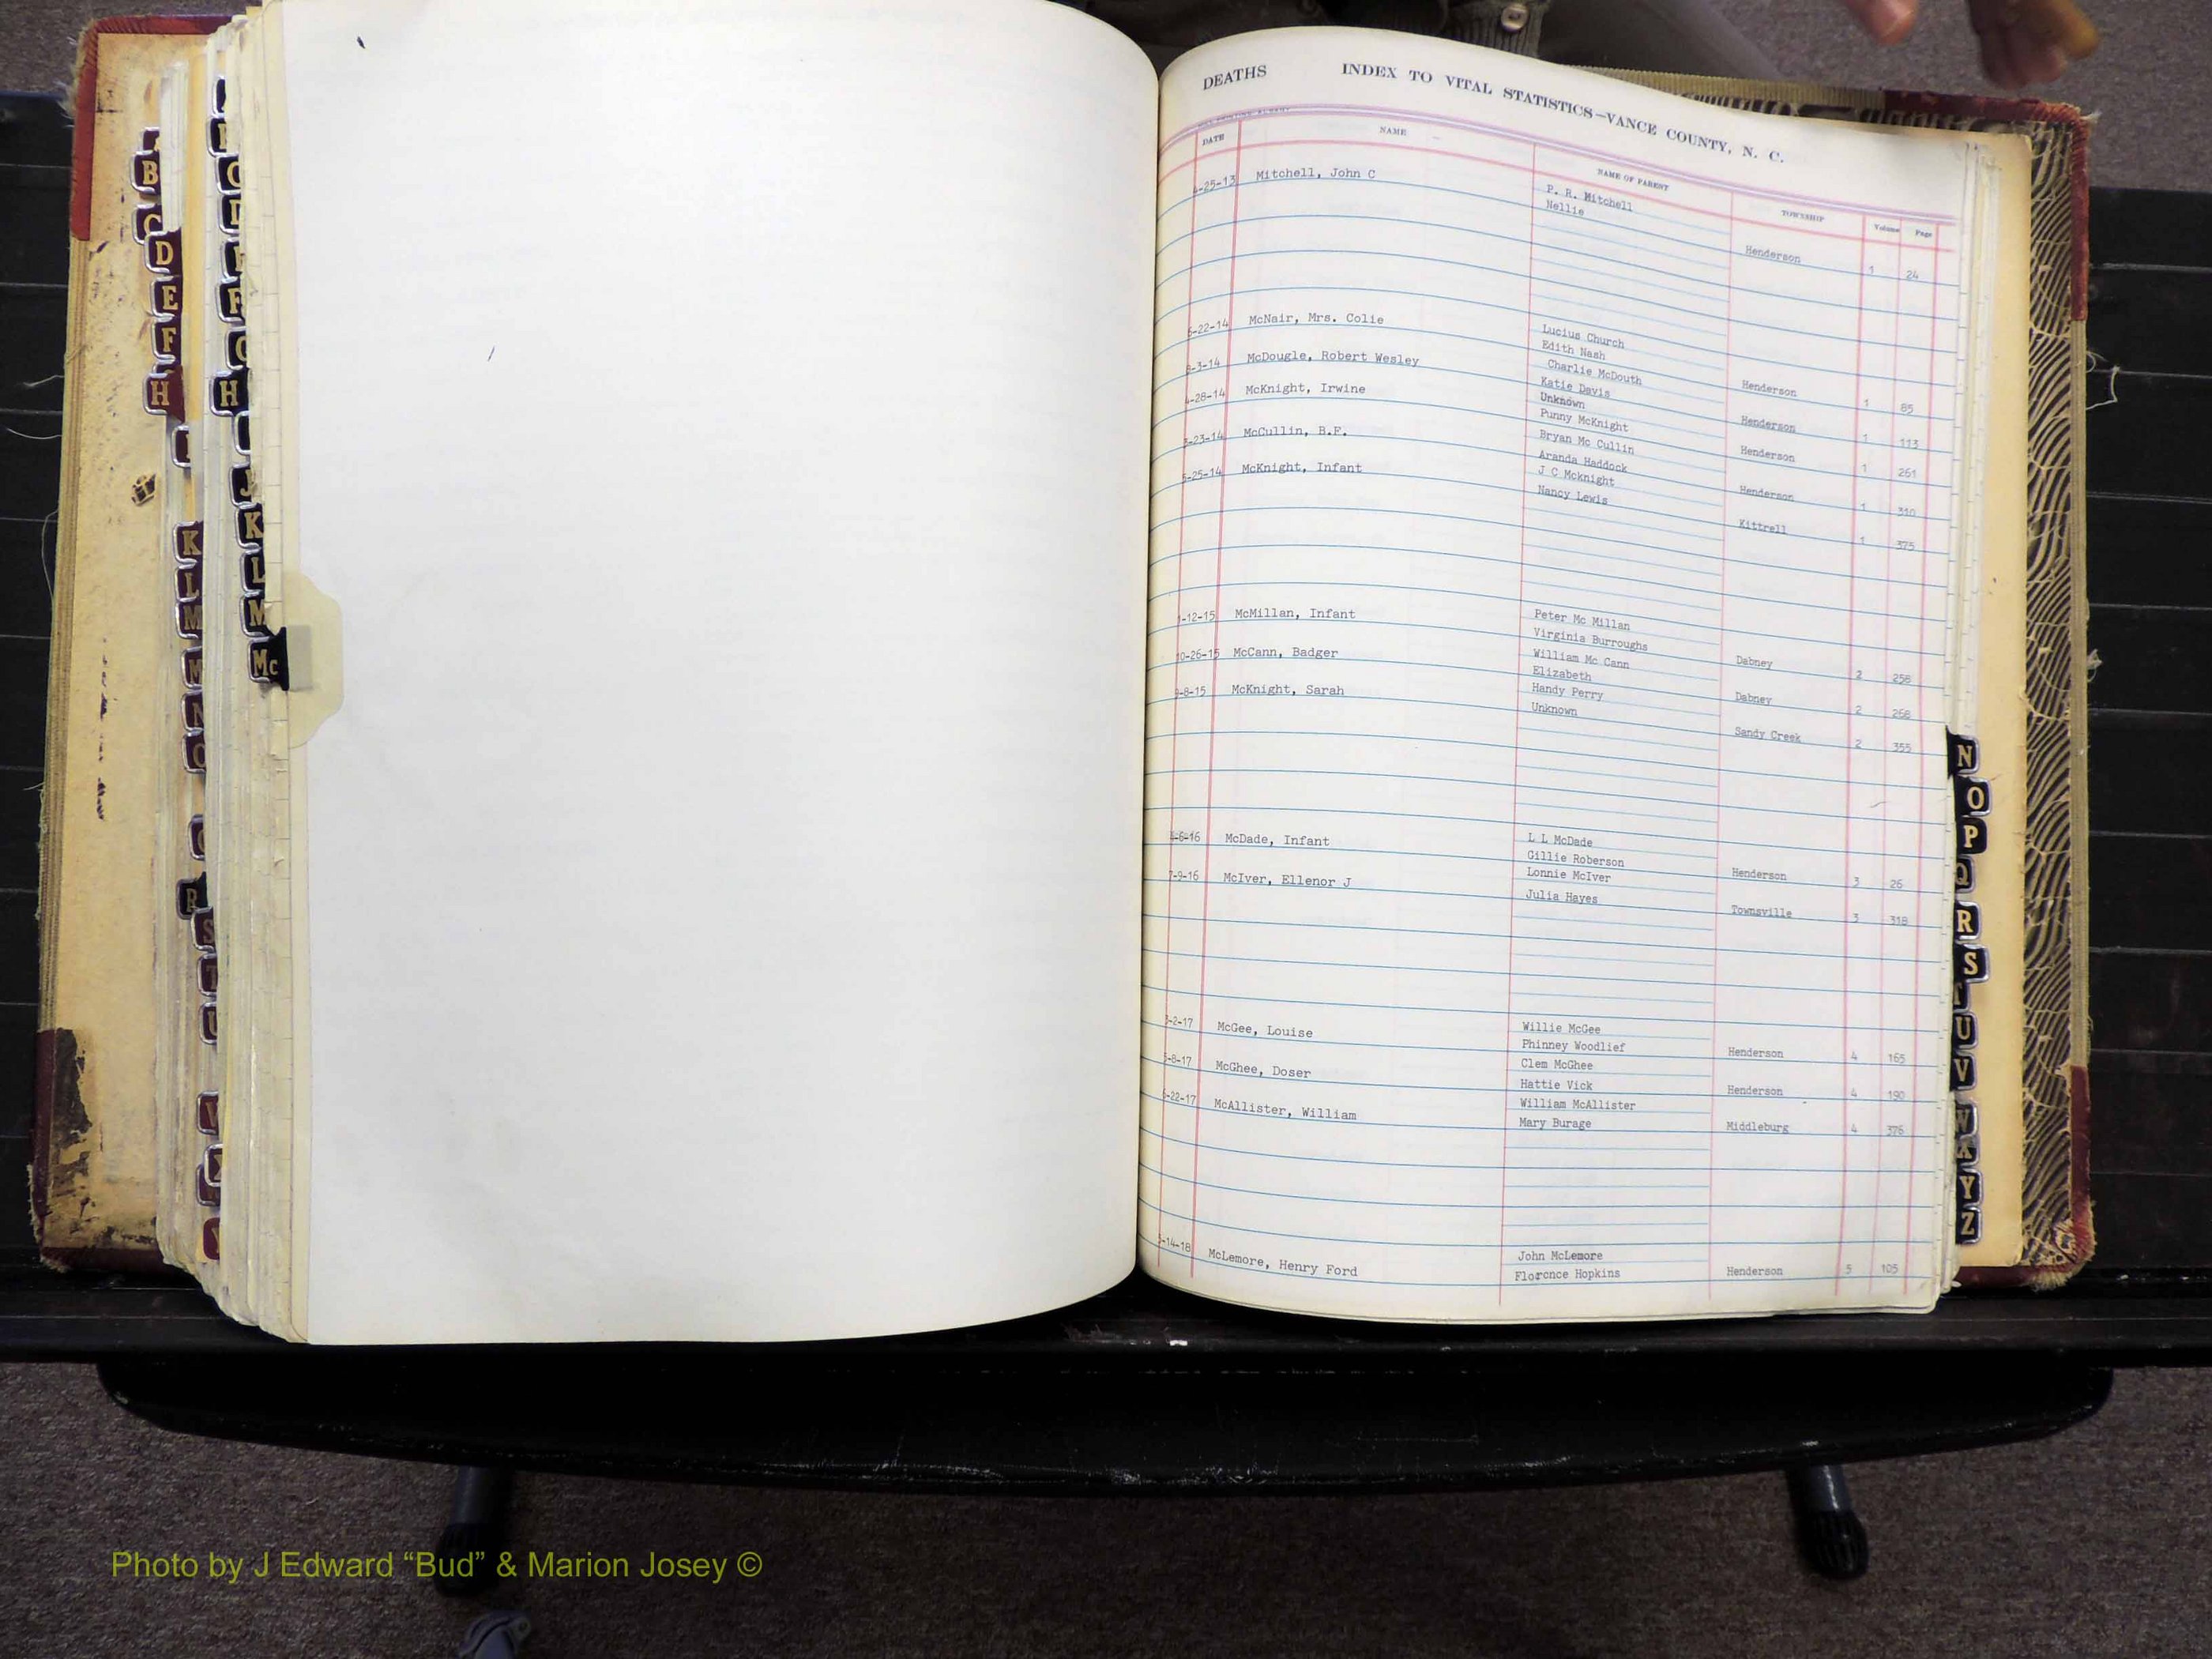 DEATHS INDEX TO VITAL STATISTICS—VANCE COUNTY, N. C.
DATE NAME NAME OF PARENT TOWNSHIP Volume Page
4-25-13 Mitchell, John C P. R. Mitchell
Nellie Henderson 1 24
-22-14 McNair, Mrs. Colie Lucius Church
Edith Nash Henderson 1 85
-3-14 McDougle, Robert Wesley Charlie McDouth
Katie Davis Henderson 1 113
4-28-14 McKnight, Irwine Unknown
Punny McKnight Henderson 1 261
-23-14 McCullin, B.F. Bryan Mc Cullin
Aranda Haddock Henderson 1 310
5-25-14 McKnight, Infant J C Mcknight
Nancy Lewis Kittrell 1 375
-12-15 McMillan, Infant Peter Mc Millan
Virginia Burroughs Dabney 2 256
10-26-15 McCann, Badger William Mc Cann
Elizabeth Dabney 2 268
9-8-15 McKnight, Sarah Handy Perry
Unknown Sandy Creek 2 355
4-6-16 McDade, Infant L L McDade
Gillie Roberson Henderson 3 26
7-9-16 McIver, Ellenor J Lonnie McIver
Julia Hayes Townsville 3 318
-2-17 McGee, Louise Willie McGee
Phinney Woodlief Henderson 4 165
5-8-17 McGhee, Doser Clem McGhee
Hattie Vick Henderson 4 190
6-22-17 McAllister, William William McAllister
Mary Burage Middleburg 4 376
-14-18 McLemore, Henry Ford John McLemore
Florence Hopkins Henderson 5 105
B
C
D
E
F
H
K
L
M
M
N
O
R
S
T
U
F
H
J
K
L
M
Mc
N
O
P
Q
R
S
U
V
W
X
Y
Z
Photo by J Edward “Bud” & Marion Josey ©